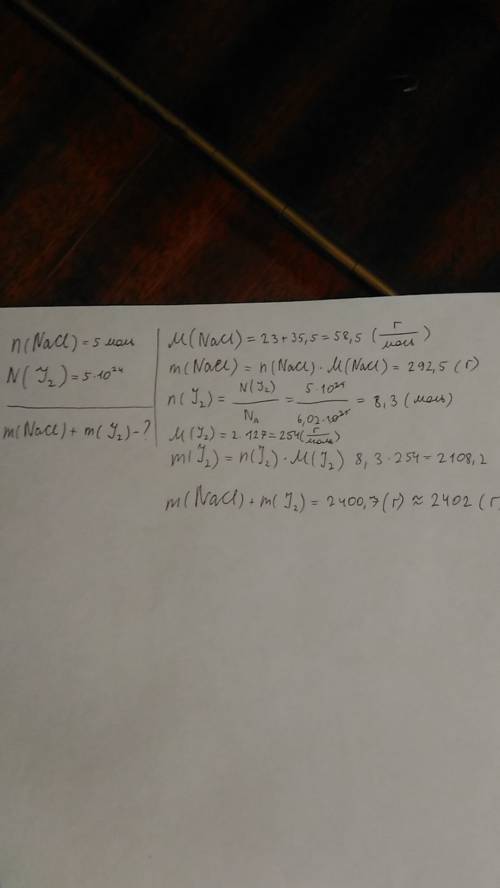 n(NaCl) = 5 моль
N(J₂) = 5·10²⁴
m(NaCl) + m(J₂) - ?
M(NaCl) = 23 + 35,5 = 58,5 (г/моль)
m(NaCl) = n(NaCl) · M(NaCl) = 292,5 (г)
n(J₂) = N(J₂)/Nₐ = 5·10²⁴/6,02·10²³ = 8,3 (моль)
M(J₂) = 2·127 = 254 (г/моль)
m(J₂) = n(J₂) · M(J₂) 8,3·254 = 2108,2
m(NaCl) + m(J₂) = 2400,7 (г) ≈ 2402 (г)